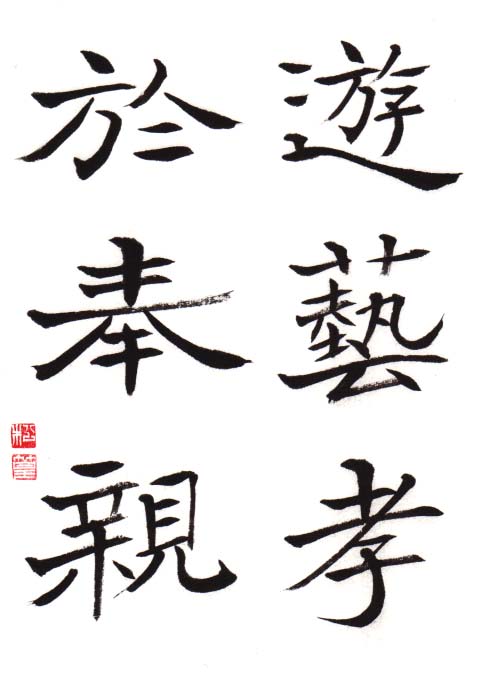 遊於
藝奉
孝親